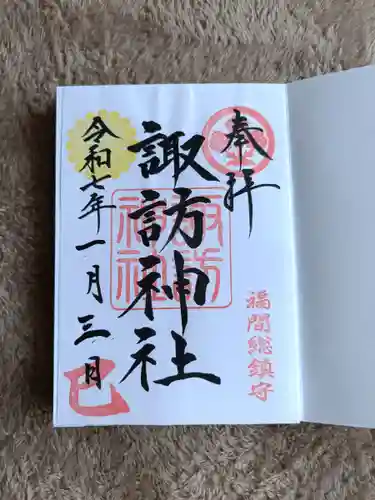 奉拝
福間総鎮守
諏訪神社
諏訪神社
令和七年一月三日
巳